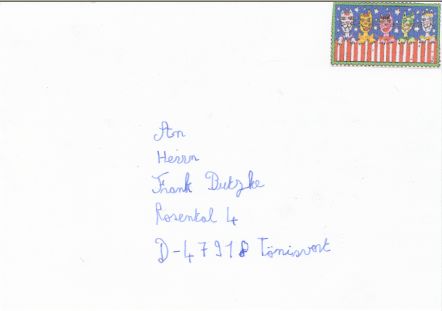 An
Herrn
Frank Butzke
Rosental 4
D-47918 Tönisvorst